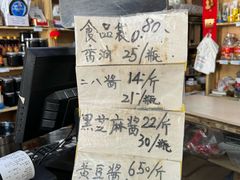 食品袋0.80
香油 25/瓶
二八酱 14/斤
21/瓶
黑芝麻酱 22/斤
30/瓶
黄豆酱 6.50/斤